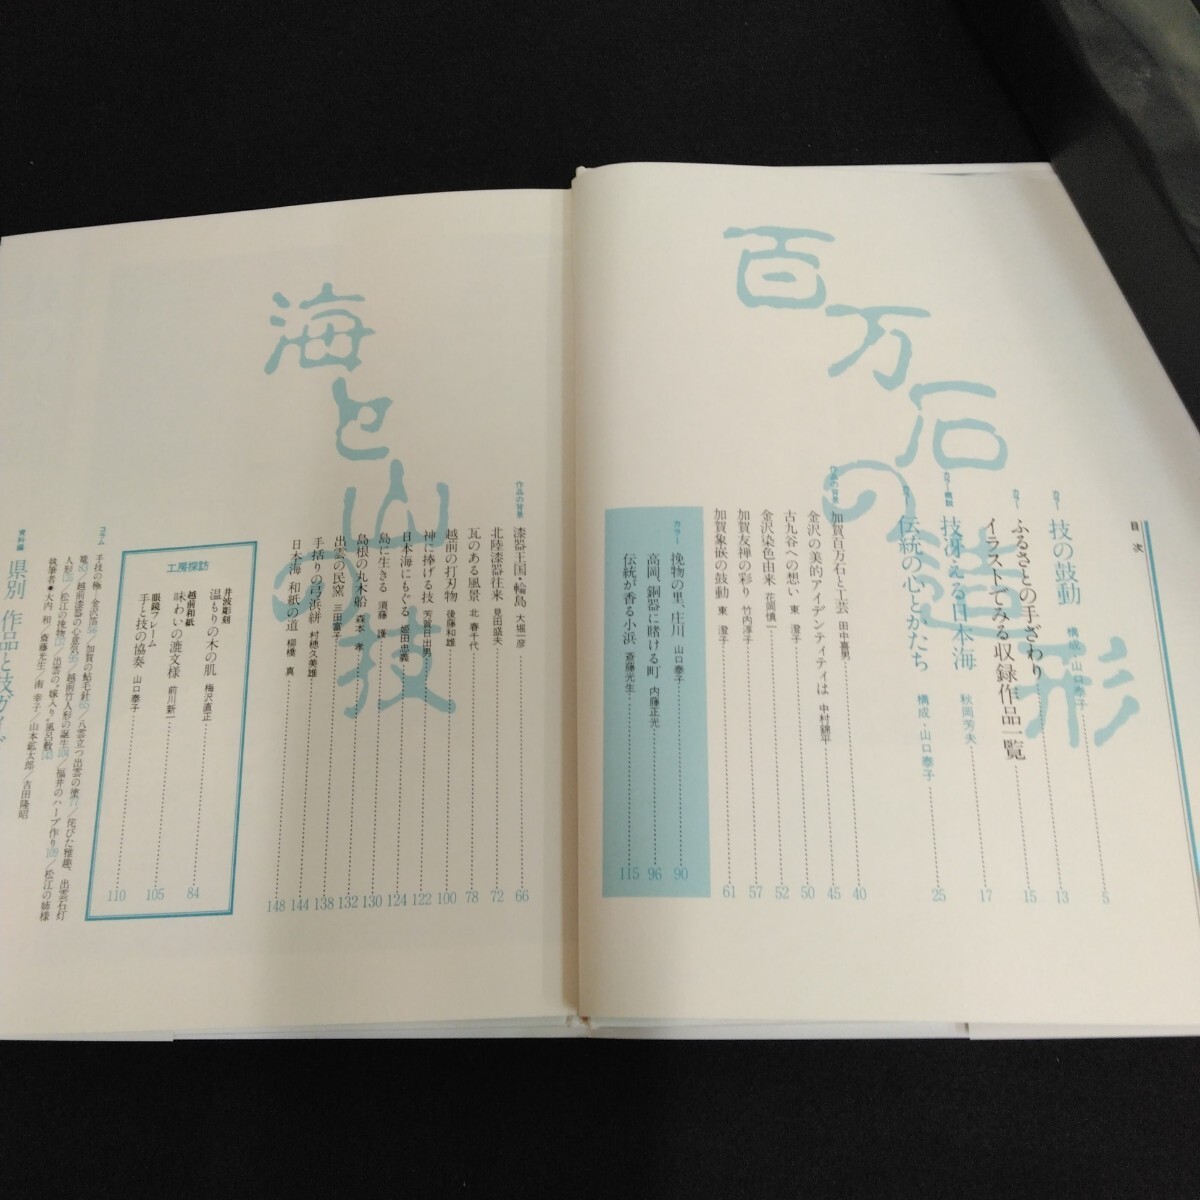 百万石の造形
目次
カラー
技の鼓動 構成・山口泰子 5
カラー
ふるさとの手ざわり 13
イラストでみる収録作品一覧 15
カラー概説
技冴える日本海 秋岡芳夫 17
カラー
伝統の心とかたち 構成・山口泰子 25
作品の背景
加賀百万石と工芸 田中喜男 40
金沢の美的アイデンティティは 中村錦平 45
古九谷への想い 東 澄子 50
金沢染色由来 花岡慎一 52
加賀友禅の彩り 竹内淳子 57
加賀象嵌の鼓動 東 澄子 61
カラー
挽物の里、庄川 山口泰子 90
高岡、銅器に賭ける町 内藤正光 96
伝統が香る小浜 斎藤光生 115
海と山の技
作品の背景
漆器王国・輪島 大堀一彦 66
北陸漆器往来 見田盛夫 72
瓦のある風景 北 春千代 78
越前の打刃物 後藤和雄 100
神に捧げる技 芳賀日出男 122
日本海にもぐる 姫田忠義 124
島に生きる 須藤 護 130
島根の丸木船 森本 孝 132
出雲の民窯 三田富子 138
手括りの弓浜絣 村穂久美雄 144
日本海 和紙の道 柳橋 真 148
工房探訪
井波彫刻
温もりの木の肌 梅沢直正 84
越前和紙
味わいの漉文様 前川新一 105
眼鏡フレーム
手と技の協奏 山口泰子 110
コラム
手技の極―金沢箔／加賀の鮎毛針／八雲立つ出雲の塗／侘びた雅趣、出雲石灯
籠／越前漆器の心意気／越前竹人形の誕生／福井のハープ作り／松江の姉様
人形／松江の挽物／出雲の"嫁入り"風呂敷
執筆者●大内 和／斎藤光生／南 幸子／山本鉱太郎／吉田隆昭
資料編
県別 作品と技ガイド